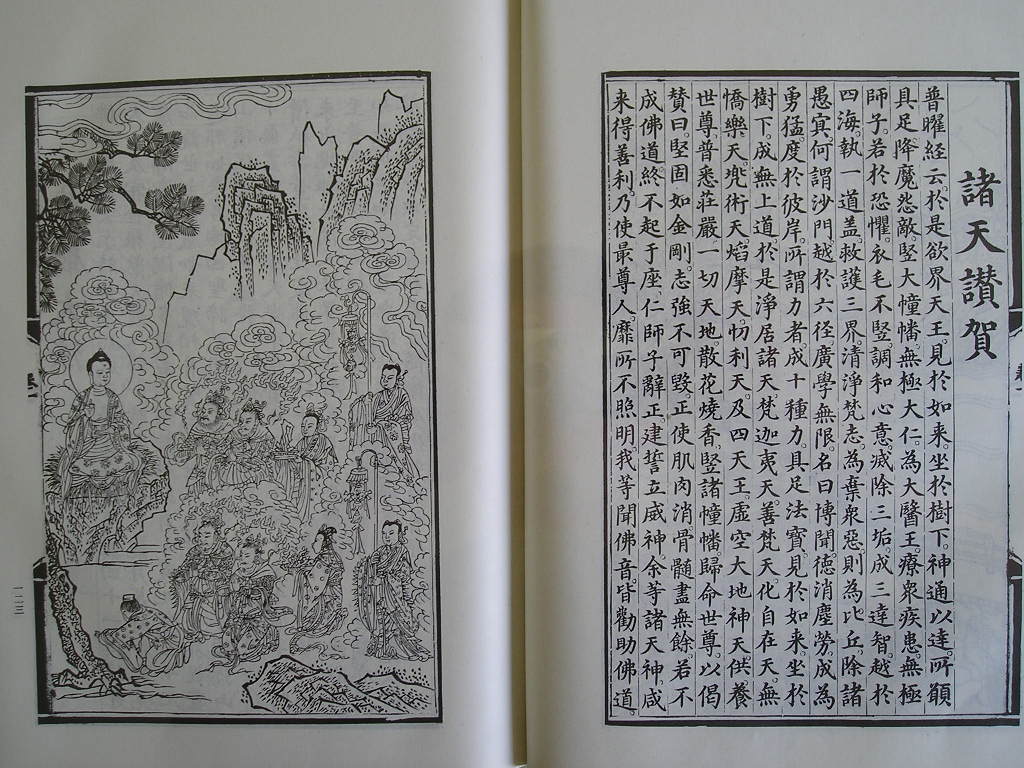 諸天讃賀
普曜經云。於是欲界天王。見於如來。坐於樹下。神通以達。所願
具足。降魔怨敵。竪大幢幡。無極大仁。為大醫王。療衆疾患。無極
師子。若於恐懼。衣毛不竪。調和心意。滅除三垢。成三達智。越於
四海。執一道盖。救護三界。清淨梵志。為棄衆惡。則為比丘。除諸
愚冥。何謂沙門。越於六径。廣學無限。名曰博聞。徳消塵勞。成為
勇猛。度於彼岸。所謂力者。成十種力。具足法寶。見於如来。坐於
樹下。成無上道。於是淨居諸天。梵迦夷天。善梵天。化自在天。無
憍樂天。兠術天。焰摩天。忉利天。及四天王。虛空大地神天。供養
世尊。普悉莊嚴。一切天地。散花燒香。竪諸幢幡。歸命世尊。以偈
賛曰。堅固如金剛。志強不可毀。正使肌肉消。骨髓盡無餘。若不
成佛道。終不起于座。仁師子辭正。建誓立威神。余等諸天神。咸
来得善利。乃使最尊人。靡所不照明。我等聞佛音。皆勸助佛道。
二三